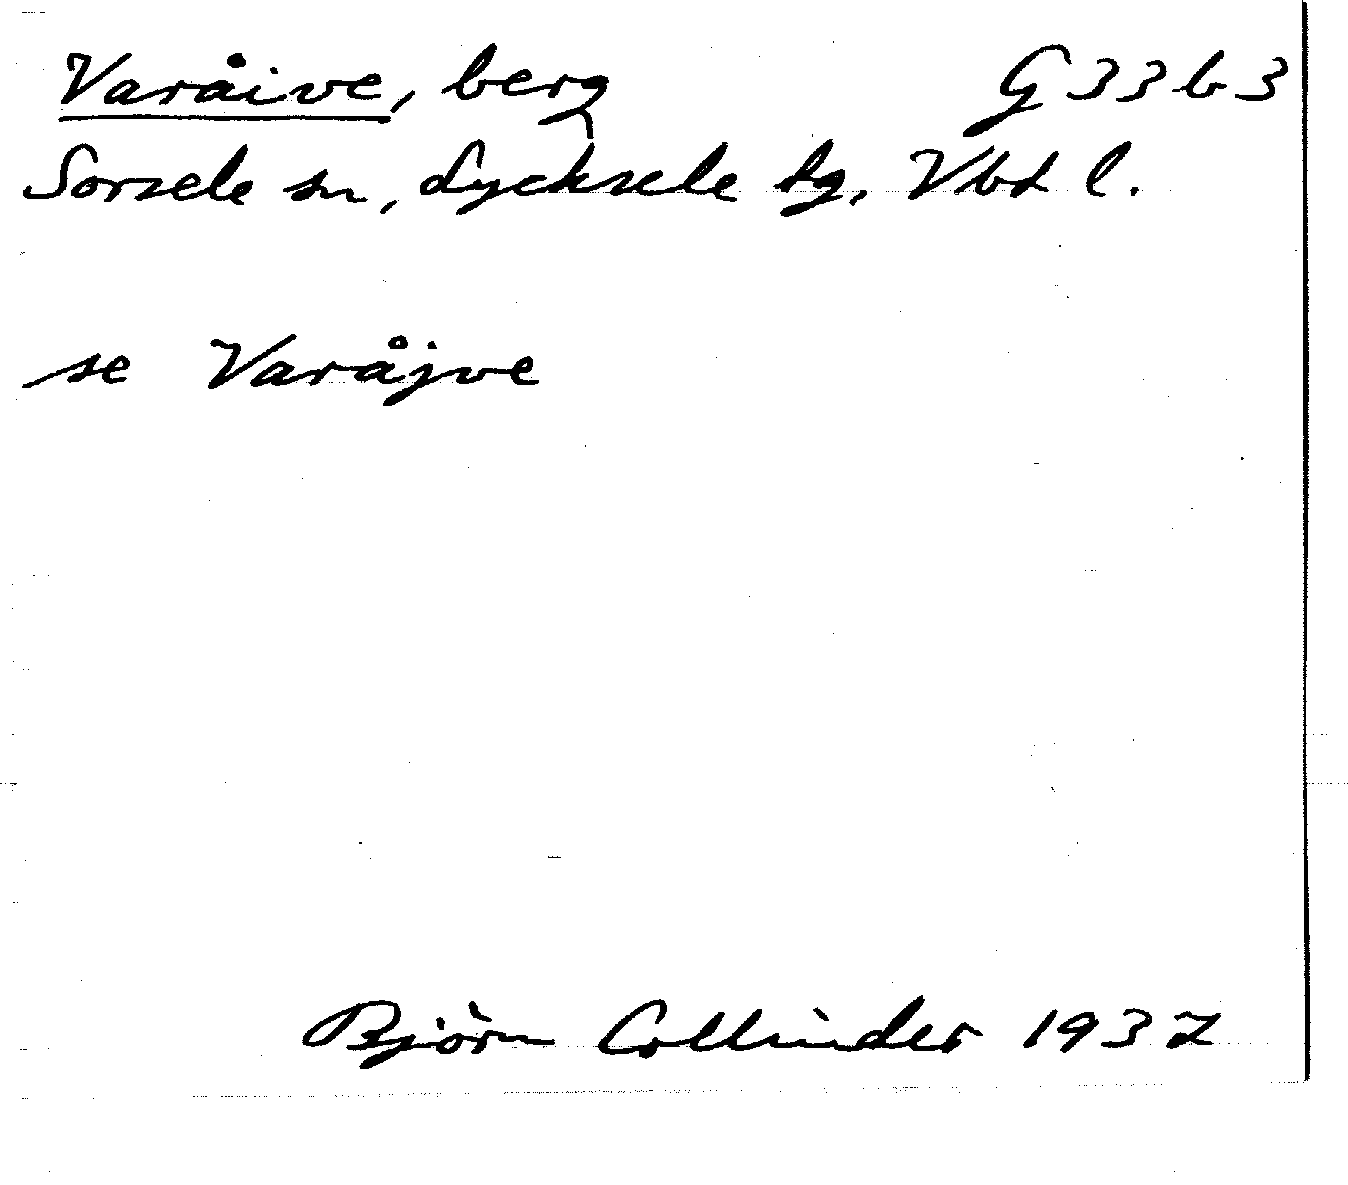 Varåive, berg G33b3
Sorsele sn, Lycksele tg, Vbt l.
se Varåjve
Björn Collinder 1937